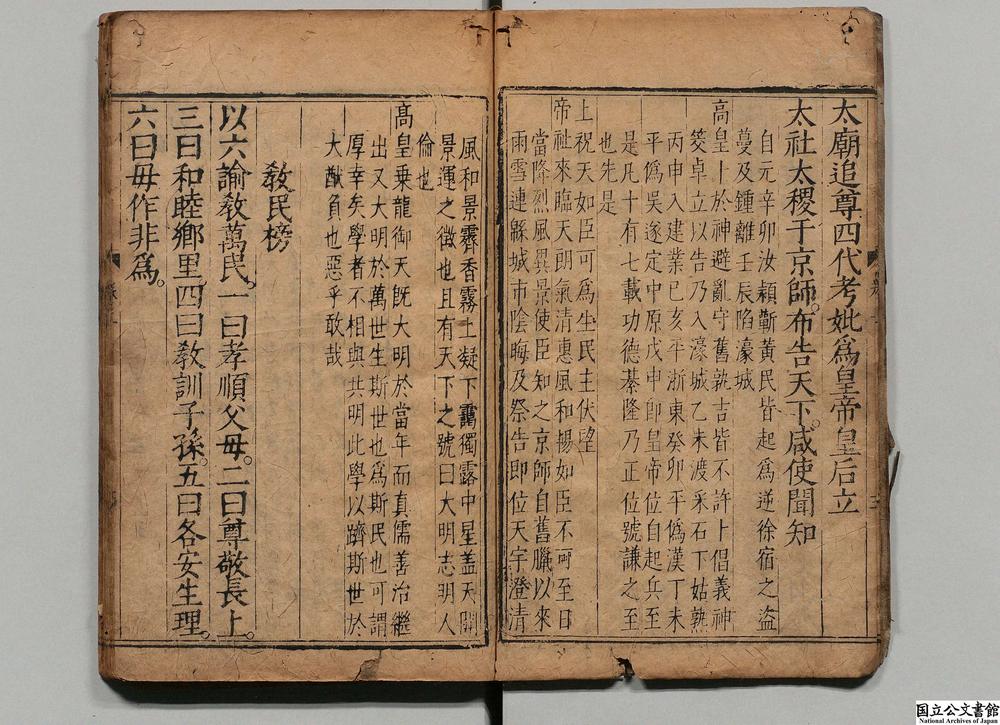 太廟追尊四代考妣爲皇帝皇后立
太社太稷于京師。布告天下。咸使聞知
自元辛卯汝穎蘄黃民皆起爲逆徐宿之盜
蔓及鍾離壬辰陷濠城
高皇卜於神避亂守舊孰吉皆不許卜倡義神
筊卓立以告乃入濠城乙未渡采石下姑熟
丙申入建業已亥平浙東癸卯平僞漢丁未
平僞吳遂定中原戊申卽皇帝位自起兵至
是凡十有七載功德綦隆乃正位號謙之至
也先是
上祝天如臣可爲生民主伏望
帝祉來臨天朗氣清惠風和暢如臣不可至日
當降烈風異景使臣知之京師自舊臘以來
雨雪連縣城市陰晦及祭告即位天宇澄清
風和景霽香霧上凝下靄獨露中星盖天開
景運之徵也且有天下之號曰大明志明人
倫也
高皇乗龍御天旣大明於當年而真儒善治繼
出又大明於萬世生斯世也爲斯民也可謂
厚幸矣學者不相與共明此學以躋斯世於
大猷負也惡乎敢哉
敎民榜
以六諭敎萬民。一曰孝順父母。二曰尊敬長上。
三曰和睦鄉里。四曰敎訓子孫。五曰各安生理。
六曰毋作非爲。
国立公文書館
National Archives of Japan